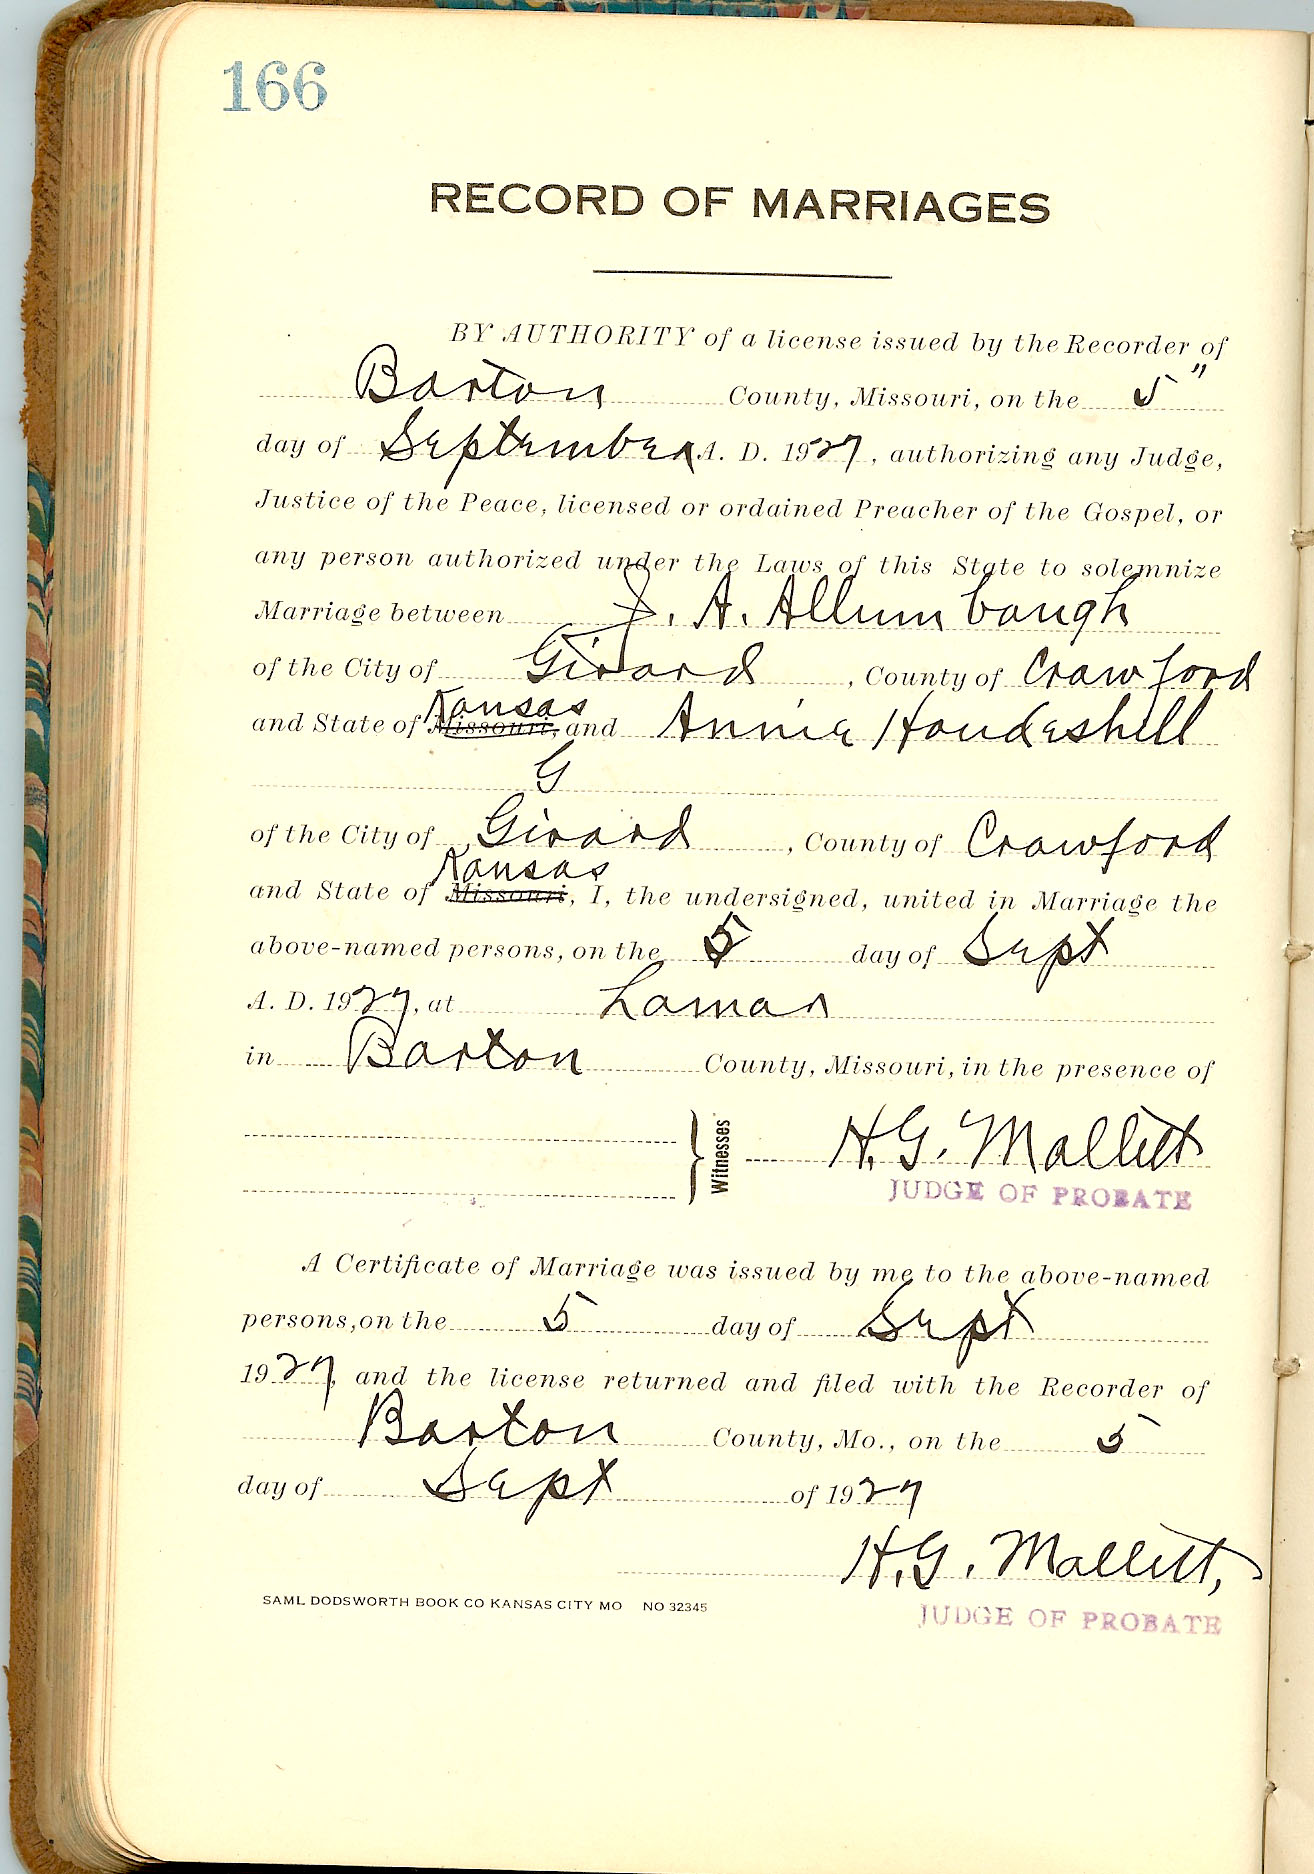 166
RECORD OF MARRIAGES
BY AUTHORITY of a license issued by the Recorder of
Barton County, Missouri, on the 5"
day of September A. D. 1927, authorizing any Judge,
Justice of the Peace, licensed or ordained Preacher of the Gospel, or
any person authorized under the Laws of this State to solemnize
Marriage between J. A. Allumbaugh
of the City of Girard, County of Crawford
and State of Kansas Missouri, and Annie Houdeshell
G
of the City of Girard, County of Crawford
and State of Kansas Missouri, I, the undersigned, united in Marriage the
above-named persons, on the 5 day of Sept
A. D. 1927, at Lamar
in Barton County, Missouri, in the presence of
Witnesses H. G. Mallett
JUDGE OF PROBATE
A Certificate of Marriage was issued by me to the above-named
persons, on the 5 day of Sept
1927, and the license returned and filed with the Recorder of
Barton County, Mo., on the 5
day of Sept of 1927
H. G. Mallett,
JUDGE OF PROBATE
SAML DODSWORTH BOOK CO KANSAS CITY MO NO 32345